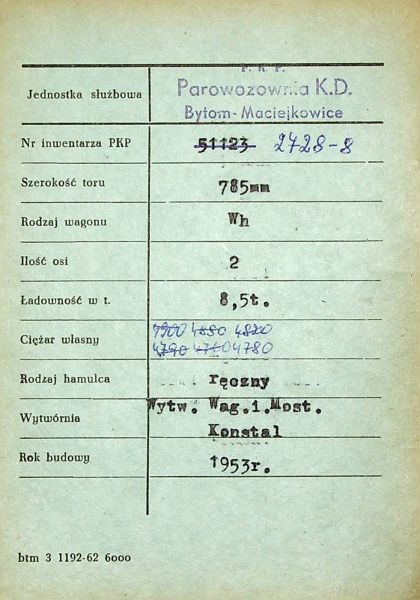 P. K. P.
Jednostka służbowa Parowozownia K.D.
Bytom-Maciejkowice
Nr inwentarza PKP 51123 2728-8
Szerokość toru 785mm
Rodzaj wagonu Wh
Ilość osi 2
Ładowność w t. 8,5t.
Ciężar własny 7900 4880 4820
4790 4780 4780
Rodzaj hamulca ręczny
Wytwórnia Wytw. Wag.i.Most.
Konstal
Rok budowy 1953r.
btm 3 1192-62 6000